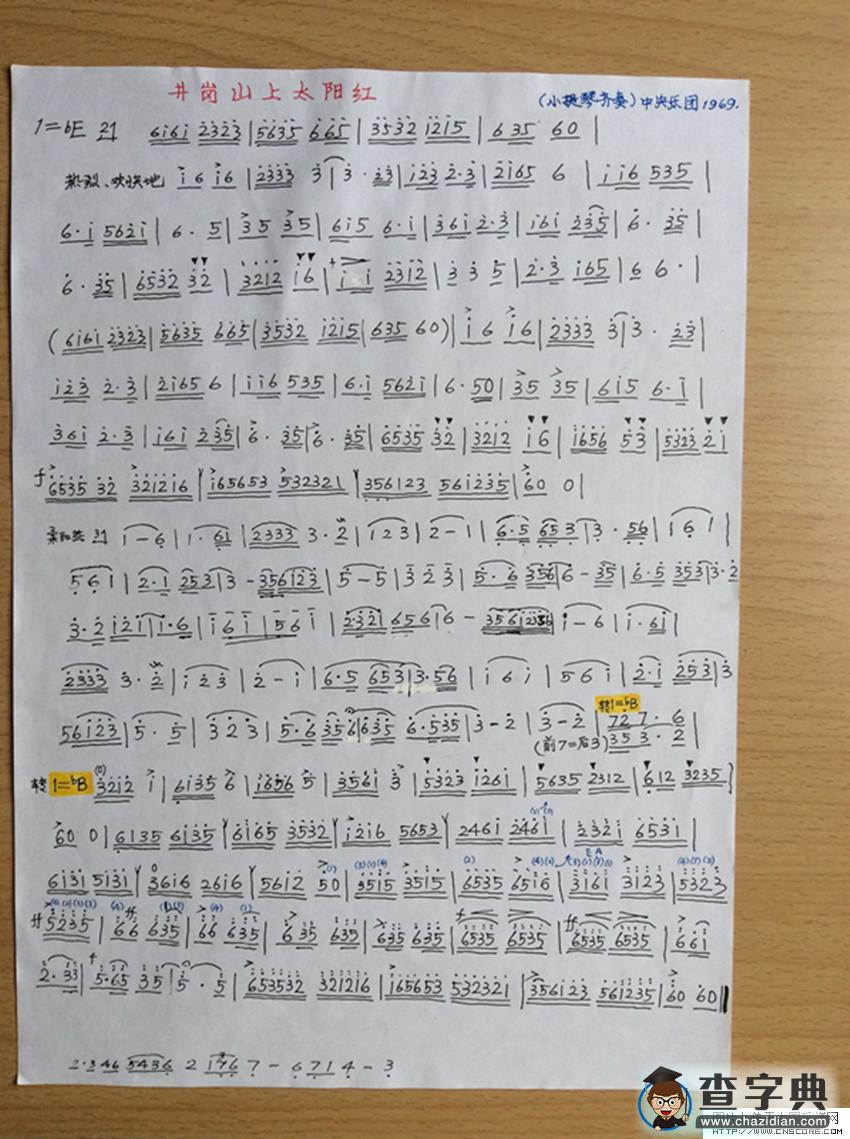 井岗山上太阳红
(小提琴齐奏) 中央乐团 1969.
1=bE 6161 2323 | 5635 665 | 3532 1215 | 635 60 |
热烈、欢快地 16 16 | 2333 3 | 3· 23 | 123 2·3 | 2165 6 | 116 535 |
6·1 5621 | 6· 5 | 35 35 | 615 6·1 | 361 2·3 | 161 235 | 6· 35 |
6· 35 | 6532 32 | 3212 16 | 1 1 2312 | 3 3 5 | 2·3 165 | 6 6· |
(6161 2323 | 5635 665 | 3532 1215 | 635 60) | 16 16 | 2333 3 | 3· 23 |
123 2·3 | 2165 6 | 116 535 | 6·1 5621 | 6· 50 | 35 35 | 615 6·1 |
361 2·3 | 161 235 | 6· 35 | 6· 35 | 6535 32 | 3212 16 | 1656 53 | 5323 21
f 6535 32 321216 | 165653 532321 | 356123 561235 | 60 0 |
1-6 | 1·61 | 2333 3·2 | 123 | 2-1 | 6·5 653 | 3·56 | 161 |
561 | 2·1 253 | 3- 356123 | 5-5 | 323 | 5·6 356 | 6-35 | 6·5 353 | 3·2
3·2 121 | 1·6 | 161 | 561 | 2·321 656 | 6- | 1-6 | 1·61 |
2333 3·2 | 123 | 2-1 | 6·5 653 | 3·56 | 161 | 561 | 2·1 253 | 3
转1=bB
56123 | 5·5 | 323 | 5·6 356 | 635 6·535 | 3-2 | 3-2 | 727·6
(前7=后3) 353·2
转 1=bB 3212 1 | 6135 6 | 1656 5 | 3561 3 | 5323 1261 | 5635 2312 | 612 3235
60 0 | 6135 6135 | 6165 3532 | 1216 5653 | 2461 2461 | 2321 6531 |
6131 5131 | 3616 2616 | 5612 50 | 3515 3515 | 6535 6516 | 3161 3123 | 5323
5235 | 66 635 | 66 635 | 635 635 | 635 635 | 6535 6535 | 6535 6535 | 661
2·33 | 5·65 35 | 5·5 | 653532 321216 | 165653 532321 | 356123 561235 | 60 60
2·346 5436 2 7- 6714-3
查字典
www.chazidian.com
HTTP://WWW.CNSCORE.COM